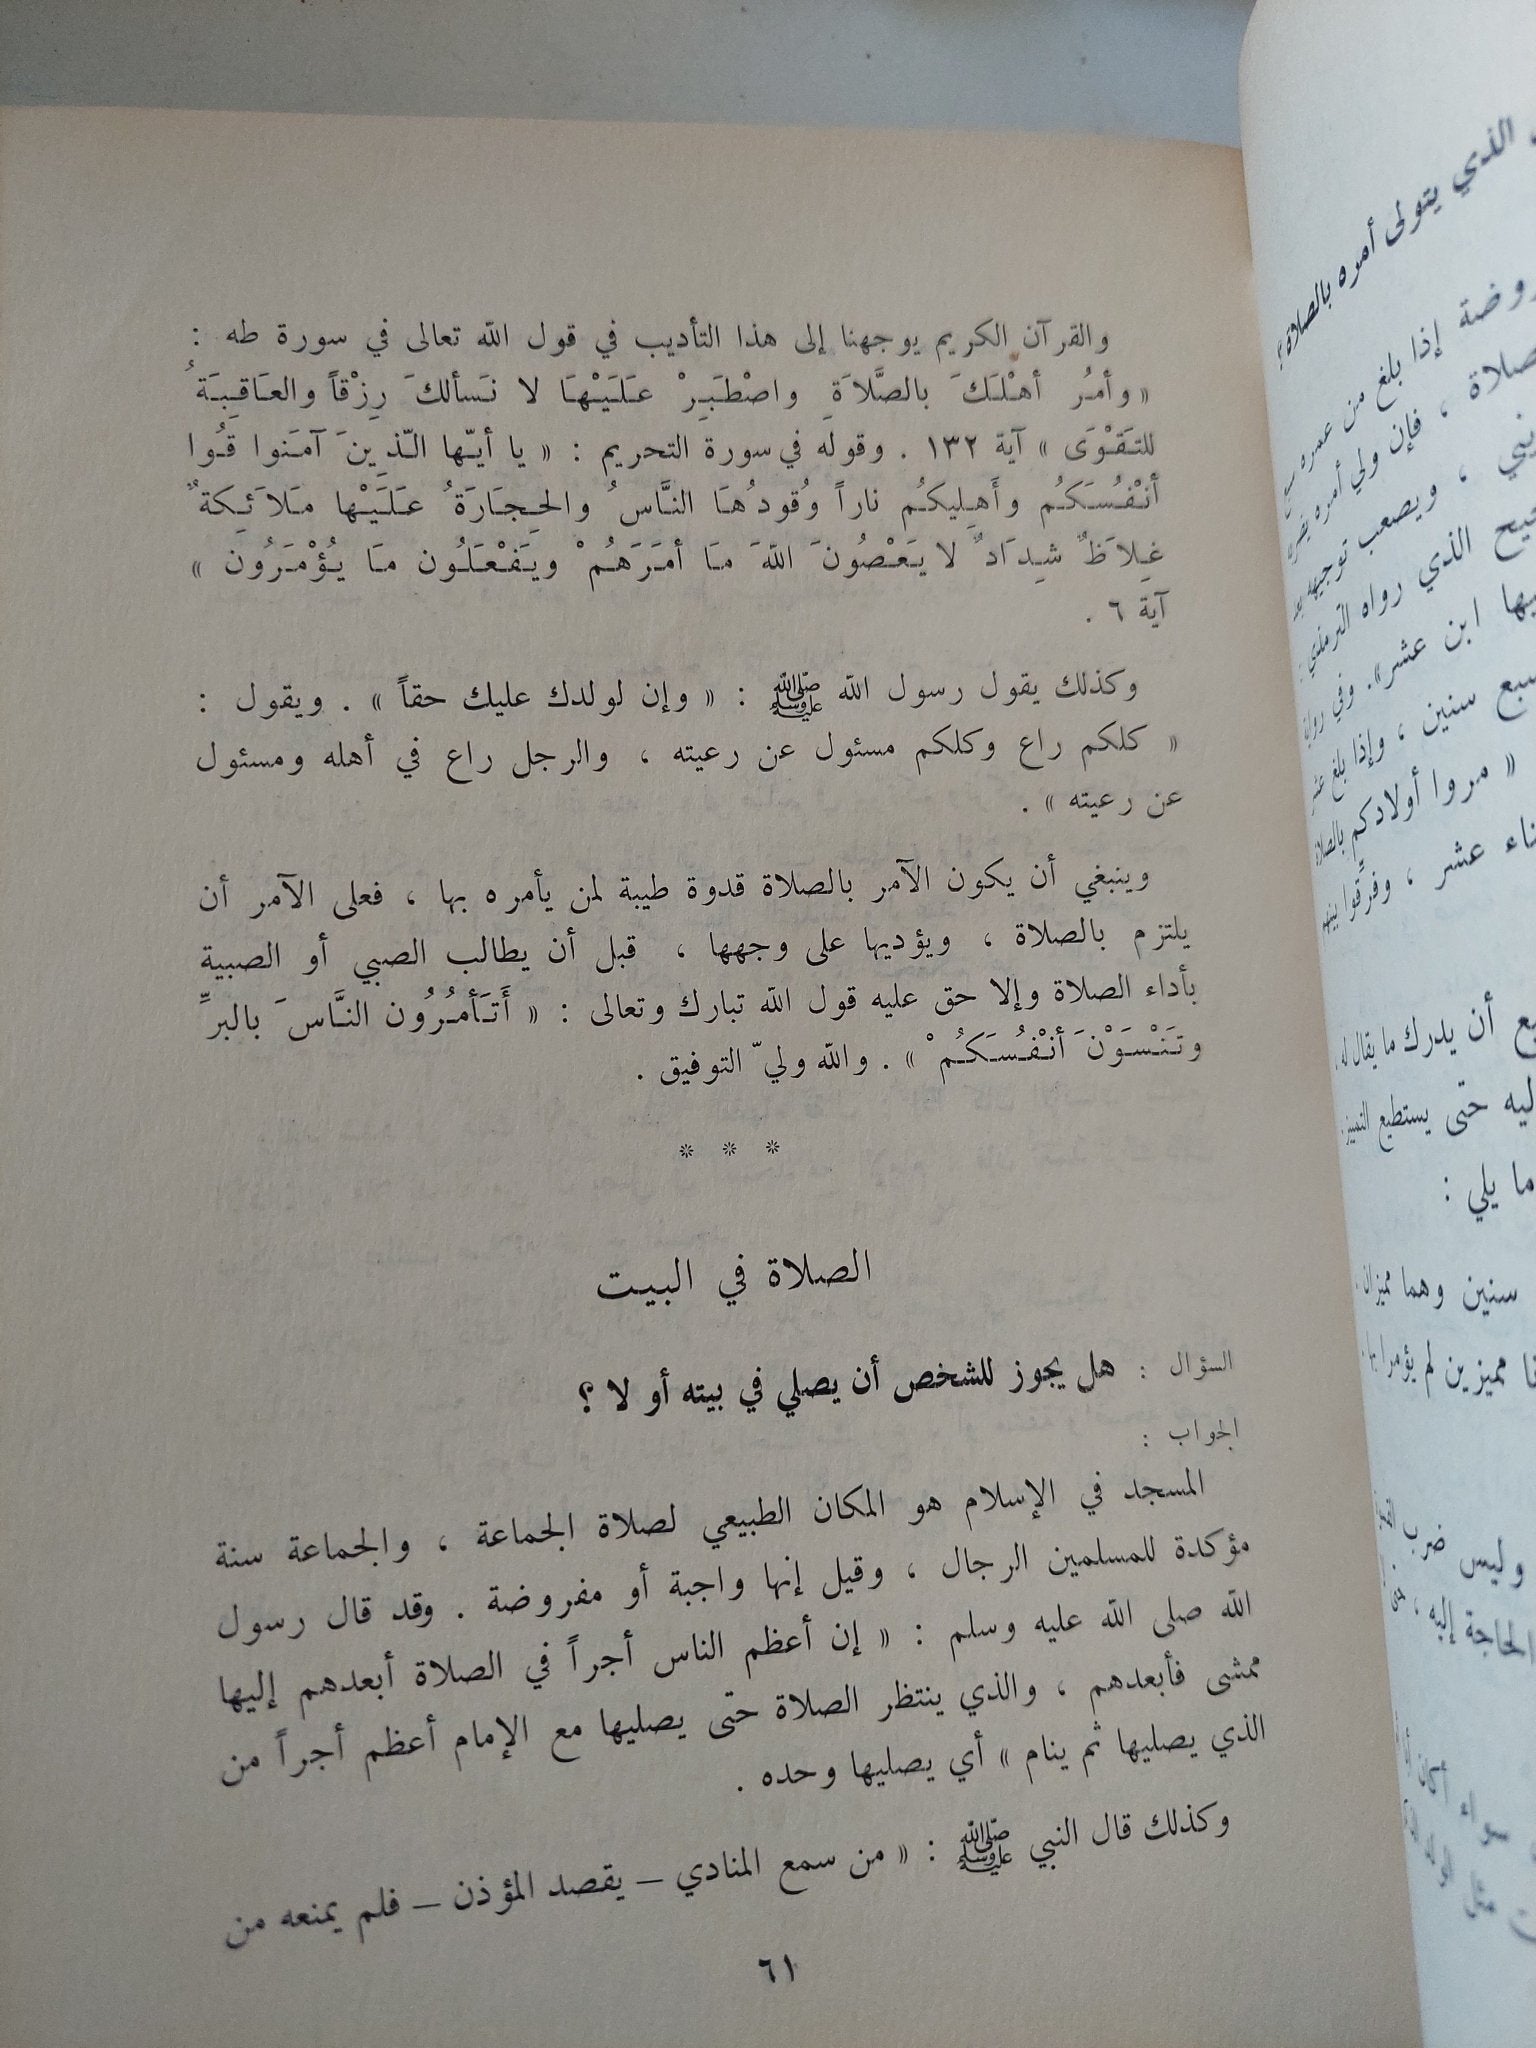 والقرآن الكريم يوجهنا إلى هذا التأديب في قول الله تعالى في سورة طه :
« وأمُر أهْلَكَ بالصَّلاَةِ واصْطَبِرْ عَلَيْهَا لا نَسألكَ رِزْقاً والعَاقِبَةُ
للتَقْوَى » آية ١٣٢ . وقوله في سورة التحريم : « يا أيّها الّذِينَ آمَنوا قُوا
أنْفُسَكُم وأَهلِيكُم ناراً وُقودُهَا النَّاسُ والحِجَارَةُ عَلَيْها مَلاَئِكةٌ
غِلاَظٌ شِدَادٌ لا يَعْصُونَ اللهَ مَا أمَرَهُمْ ويَفْعَلُون مَا يُؤْمَرُون »
آية ٦ .
وكذلك يقول رسول الله ﷺ : « وإن لولدك عليك حقاً » . ويقول :
« كلكم راع وكلكم مسئول عن رعيته ، والرجل راع في أهله ومسئول
عن رعيته » .
وينبغي أن يكون الآمر بالصلاة قدوة طيبة لمن يأمره بها ، فعلى الآمر أن
يلتزم بالصلاة ، ويؤديها على وجهها ، قبل أن يطالب الصبي أو الصبية
بأداء الصلاة وإلا حق عليه قول الله تبارك وتعالى : « أَتَأمُرُون النَّاسَ بالبرِّ
وتَنْسَوْنَ أنْفُسَكُمْ » . والله وليّ التوفيق .
* * *
الصلاة في البيت
السؤال : هل يجوز للشخص أن يصلي في بيته أو لا ؟
الجواب :
المسجد في الإسلام هو المكان الطبيعي لصلاة الجماعة ، والجماعة سنة
مؤكدة للمسلمين الرجال ، وقيل إنها واجبة أو مفروضة . وقد قال رسول
الله صلى الله عليه وسلم : « إن أعظم الناس أجراً في الصلاة أبعدهم إليها
ممشى فأبعدهم ، والذي ينتظر الصلاة حتى يصليها مع الإمام أعظم أجراً من
الذي يصليها ثم ينام » أي يصليها وحده .
وكذلك قال النبي ﷺ : « من سمع المنادي – يقصد المؤذن – فلم يمنعه من
٦١
الذي يتولى أمره بالصلاة؟
إذا بلغ من عمره سبع
صلاة ، فإن ولي أمره
، ويصعب توجيهه بعد
الذي رواه الترمذي :
ابن عشر». وفي رواية
سبع سنين ، وإذا بلغ عشر
« مروا أولادكم بالصلاة
عشر ، وفرّقوا بينهم
أن يدرك ما يقال له ،
حتى يستطيع التمييز .
ما يلي :
سنين وهما مميزان .
مميزين لم يؤمرا بها .
وليس ضرب
الحاجة إليه ،